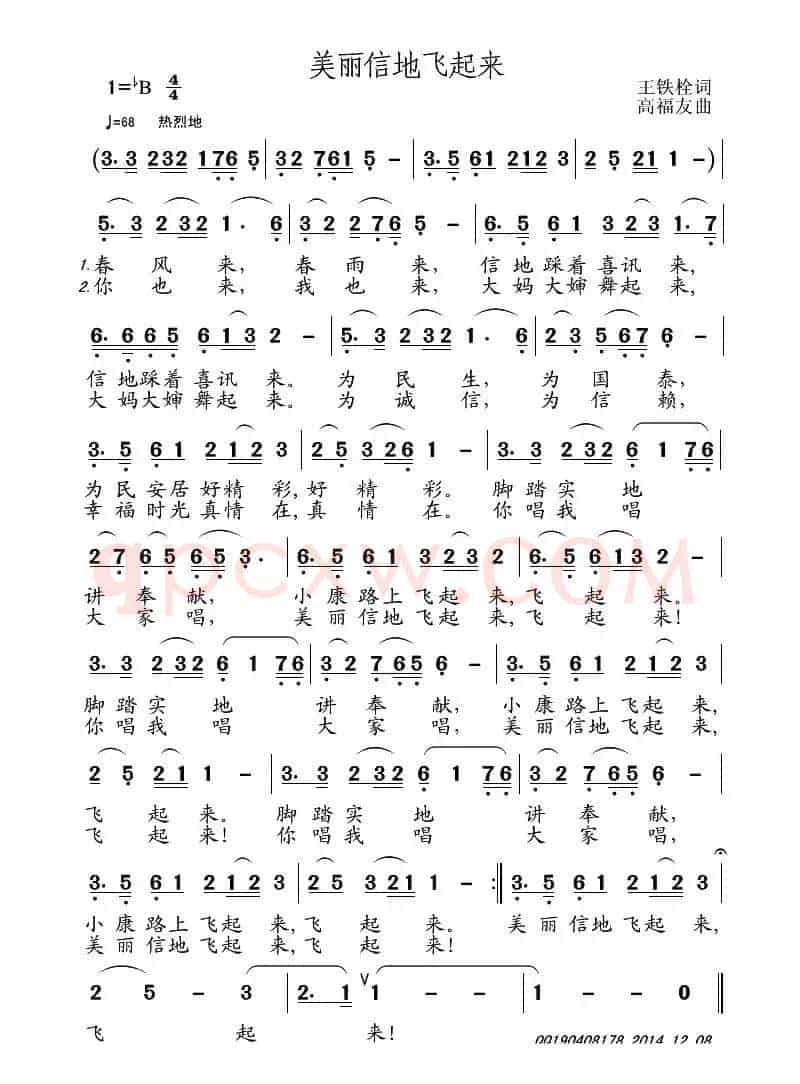 美丽信地飞起来
1=♭B 4/4
王铁栓词
高福友曲
♩=68 热烈地
(3. 3 232 176 5 | 32 761 5 - | 3. 5 61 2123 | 2 5 21 1 -)
5. 3 232 1. 6 | 3 2 276 5 - | 6. 5 6 1 323 1. 7
1.春风来, 春雨来, 信地踩着喜讯来,
2.你也来, 我也来, 大妈大婶舞起来,
6. 6 6 5 613 2 - | 5. 3 232 1. 6 | 2 3 567 6 -
信地踩着喜讯来。 为民生, 为国泰,
大妈大婶舞起来。 为诚信, 为信赖,
3. 5 6 1 212 3 | 2 5 326 1 - | 3. 3 232 6 1 76
为民安居好精彩,好精彩。 脚踏实地
幸福时光真情在,真情在。 你唱我唱
2 7 6 5 653. | 6. 5 6 1 323 2 | 6. 5 613 2 -
讲奉献, 小康路上飞起来,飞起来。
大家唱, 美丽信地飞起来,飞起来!
3. 3 232 6 1 76 | 3 2 765 6 - | 3. 5 6 1 212 3
脚踏实地 讲奉献, 小康路上飞起来,
你唱我唱 大家唱, 美丽信地飞起来,
2 5 21 1 - | 3. 3 232 6 1 76 | 3 2 765 6 -
飞起来。 脚踏实地 讲奉献,
飞起来! 你唱我唱 大家唱,
3. 5 6 1 212 3 | 2 5 321 1 - :|| 3. 5 6 1 212 3
小康路上飞起来,飞起来。 美丽信地飞起来,
美丽信地飞起来,飞起来!
2 5 - 3 | 2. 1 1 - - | 1 - - 0 ||
飞起来!
qpcxw.COM
00190408178 2014.12.08